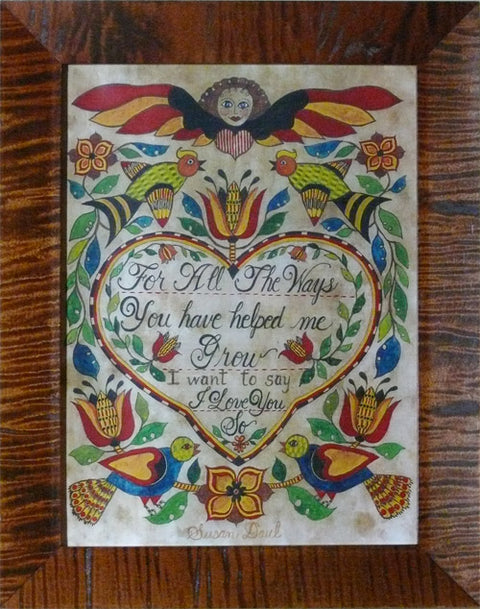 For All The Ways
You have helped me
Grow
I want to say
I Love You
So
Susan Daul